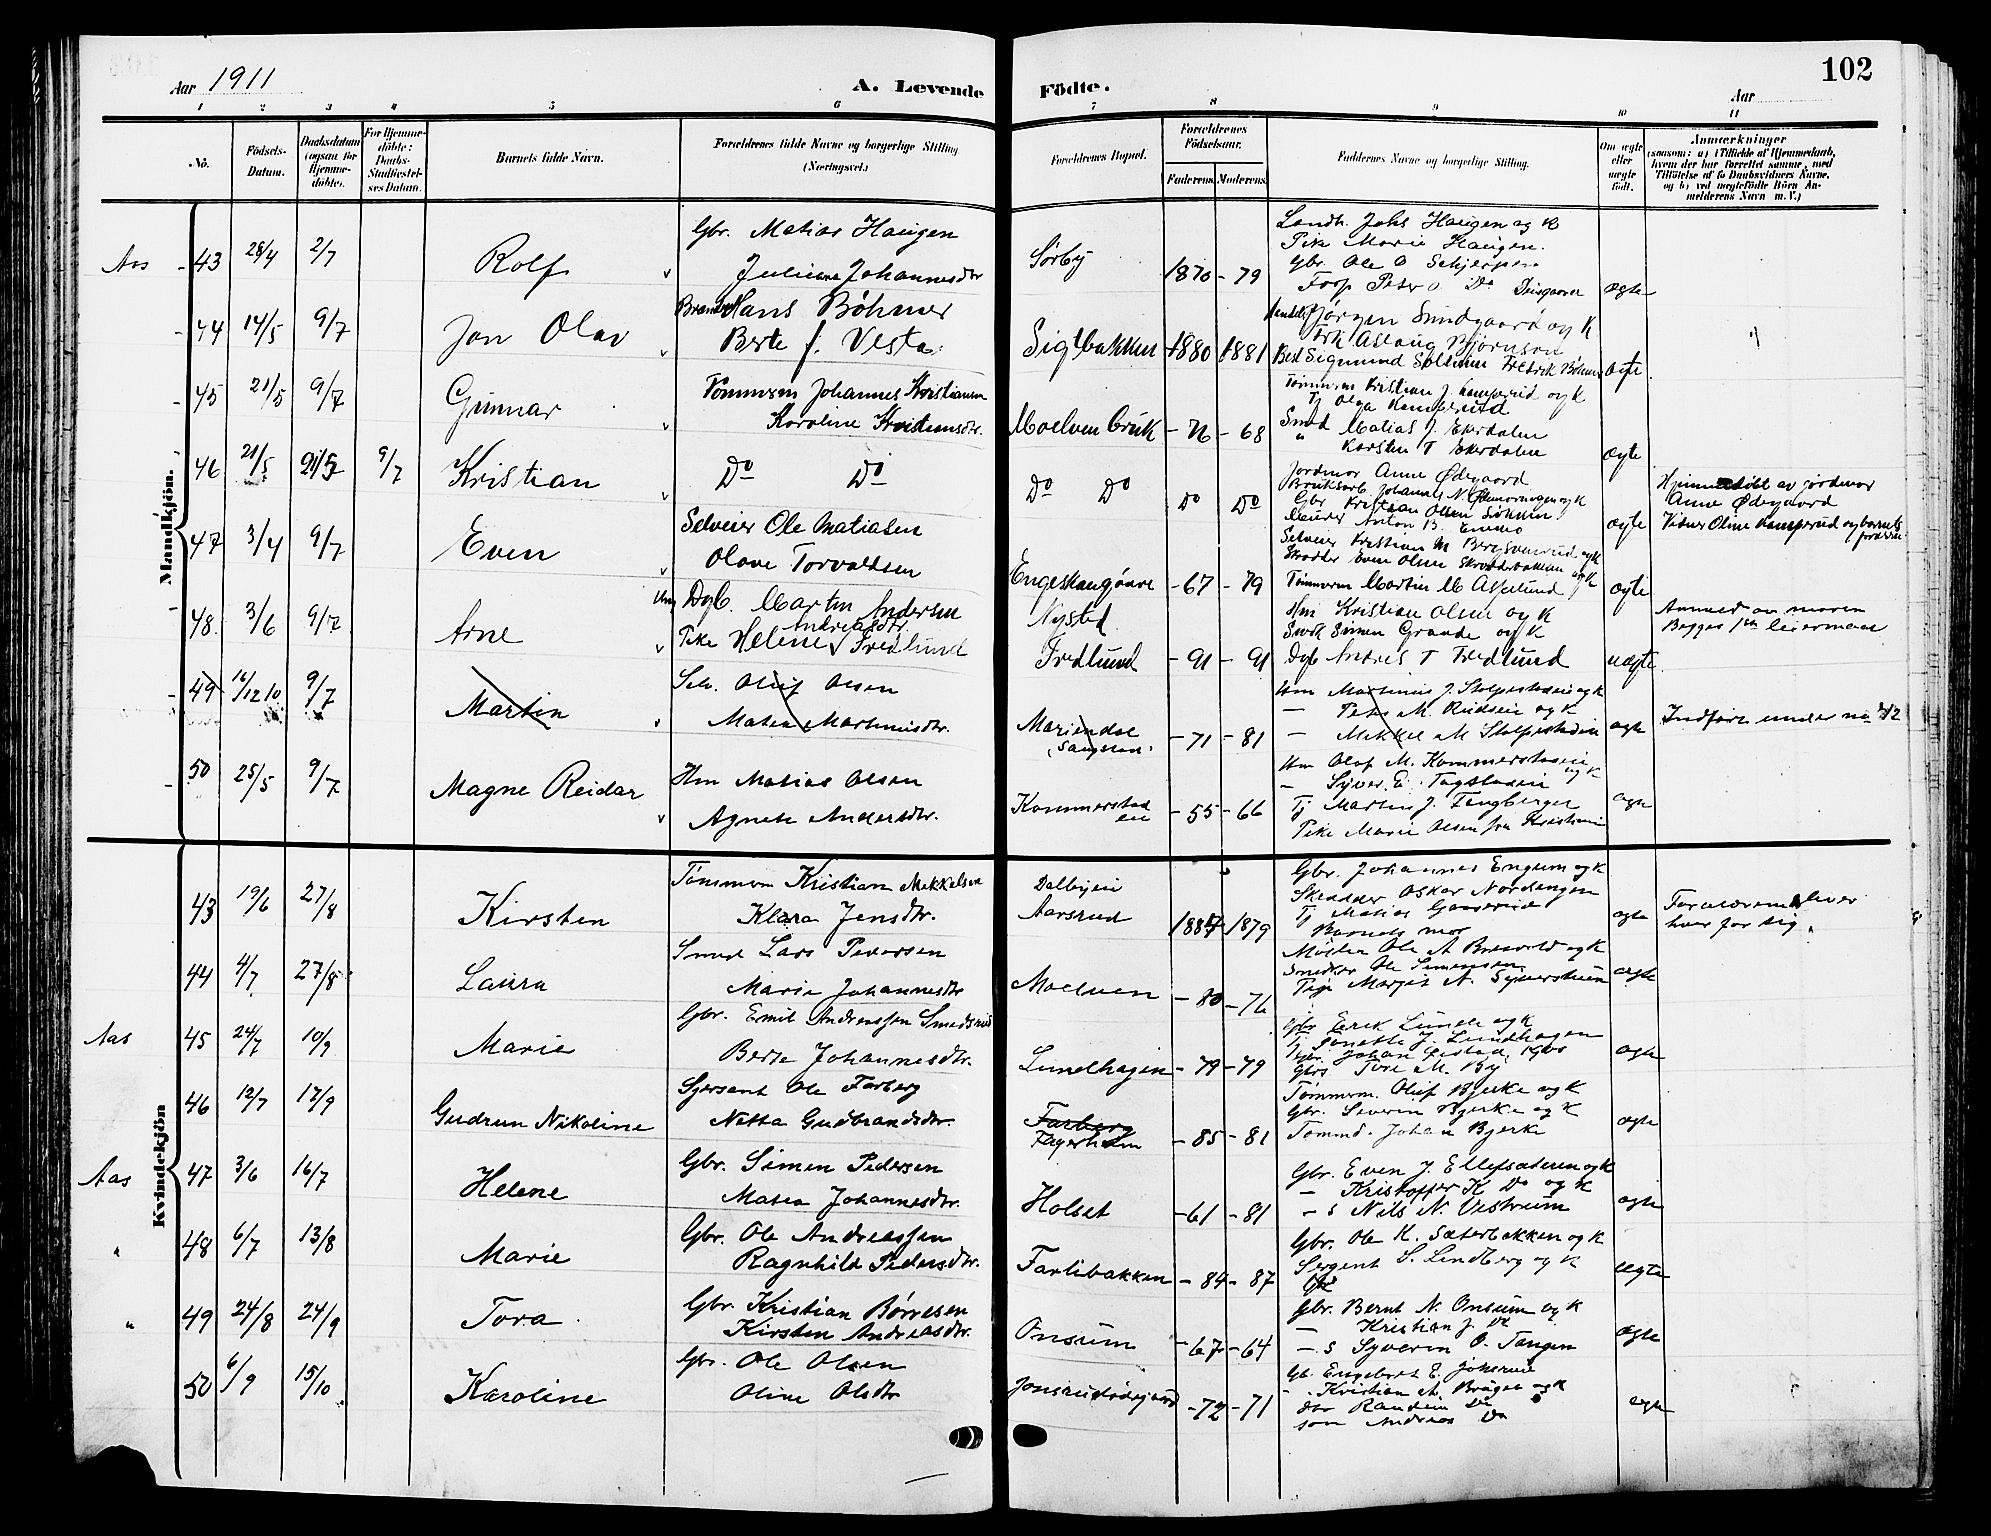 Aar 1911
A. Levende
Födte.
102
Aar
1 2 3 4 5 6 7 8 9 10 11
No.
Födsels-Datum.
Daabsdatum (ogsaa for Hjemmedöbte).
For Hjemmedöbte: Daabs-Stadfæstelses Datum.
Barnets fulde Navn.
Forældrenes fulde Navne og borgerlige Stilling (Næringsvei.)
Forældrenes Bopæl.
Forældrenes Födselsaar.
Faderens. Moderens.
Faddernes Navne og borgerlige Stilling.
Om ægte eller uægte födt.
Anmærkninger
(saasom: a) i Tilfælde af Hjemmedaab, hvem der har forrettet samme, med Tilföielse af to Daabsvidners Navne, og b) ved uægtefödte Börn Anmelderens Navn m. V.)
Mandkjön.
Aas 43 28/4 2/7 Rolf
Gbr. Matias Haugen
Juliane Johannesdtr
Sørby 1870 - 79
Landh. Johs Haugen og K
Pike Marie Haugen.
Gbr. Ole O
ægte
44 14/5 9/7 Jon Olav
Hans Böhmer
Berte f. Vesta
Sigtbakken 1880 1881
Jørgen Sundgaard og K
Aslaug Bjørnson
Sigmund Fredrik Böhmer
ægte
45 21/5 9/7 Gunnar
Tømmerm Johannes Kristiansen
Karoline Kristiansdtr.
Moelven bruk - 76 - 68
Tømmerm Kristian J. Kamperud og K
Tj Olga Kamperud
Smed Matias J. Ekerdalen
" Karsten T Ekerdalen
ægte
46 21/5 21/5 9/7 Kristian
Do Do
Do Do
Do Do
Jordmor Anne Ødegaard
Bruksarb. Johannes N.
Gbr Kristian Olsen
Murer Anton B.
ægte
Hjemmedøbt av jordmor
Anne Ødegaard
Vidner Oline Kamperud og barnets
47 3/4 9/7 Even
Selveier Ole Matiasen
Olave Torvaldsen
- 67 - 79
Selveier Kristian M Bergsveenrud og K
Skrædder Even Olsen Skrædderbakken og K
Tømmerm Martin M Askelund
ægte
48. 3/6 9/7 Arne
Ung Dgb. Martin Andersen
Nysted
Pike Helene Andreasdtr Fredlund
Fredlund - 91 - 91
Hm Kristian Olsen og K
Smed Simen Grande og K
Dgb Andres T Fredlund
uægte
Anmed av moren
Begges 1ste leiermaal
49 16/12 10 9/7 Martin
Selv. Oluf Olsen
Matea Martinusdtr.
Mariendal
- 71 - 81
Hm Martinus J. Stolpestadeie og K
— Peter M. Rudseie og K
— Mikkel M Stolpestadeie
ægte
Indført under no 42
50 25/5 9/7 Magne Reidar
Hm Matias Olsen
Agnete Andersdtr.
Kommerstadeie - 55 - 66
Hm Olof M. Kommerstadeie
— Syver E. Tagstadeie og K
Tj Martin J. Fangberget
Pike Marie Olsen fra Kristiania
ægte
Kvindekjön
43 19/6 27/8 Kirsten
Tømmerm Kristian Mikkelsen
Klara Jensdtr.
Dalbyeie
Aarsrud 1884 - 1879
Gbr. Johannes Engum og K
Skrædder Oskar Nordengen
Tj Matias
Barnets mor
ægte
Forældrene lever
hver for sig.
44 4/7 27/8 Laura
Smed Lars Pedersen
Marie Johannesdtr
Moelven - 80 - 76
Møller Ole A Bresvold og K
Snedker Ole Simensen
Pige Margit N. Syverstuen
ægte
Aas 45 24/7 10/9 Marie
Gbr. Emil Andreassen Smedsrud
Berte Johannesdtr.
Lundhagen - 79 - 79
Gbr Erik Lunde og K
Tj Janette J. Lundhagen
Gbr. Johan
Gbrs Tore M. By
ægte
46 12/7 17/9 Gudrun Nikoline
Sjersant Ole Farberg
Netta Gudbrandsdtr.
Farberg
Fagerholm - 85 - 81
Tømmerm. Oluf Bjerke og K
Gbr. Severin Bjerke og K
Tømmd. Johan Bjerke
ægte
Aas 47 3/6 16/7 Helene
Gbr. Simen Pedersen
Matea Johannesdtr.
Holset - 61 - 81
Gbr. Even J. Ellefsæteren og K
— Kristoffer K Do og K
- s Nils N. Vestrum
ægte
" 48 6/7 13/8 Marie
Gbr. Ole Andreassen
Ragnhild Pedersdtr.
Farlibakken - 84 - 87
Gbr. Ole K. Sæterbakken og K
Sergent S. Lindberg og K
ægte
" 49 24/8 24/9 Tora
Gbr. Kristian Børresen
Kirsten Andreasdtr.
Onsum - 67 - 64
Gbr. Bernt N. Onsum og K
— Kristian J. Do
— s Syverin O. Tangen
ægte
50 6/9 15/10 Karoline
Gbr. Ole Olsen
Oline Olsdtr
Jonsrudødegaard - 72 - 71
Gb. Engebret E. Jonsrud
- Kristian A. og K
dtr Randine Do
søn Andreas Do
ægte